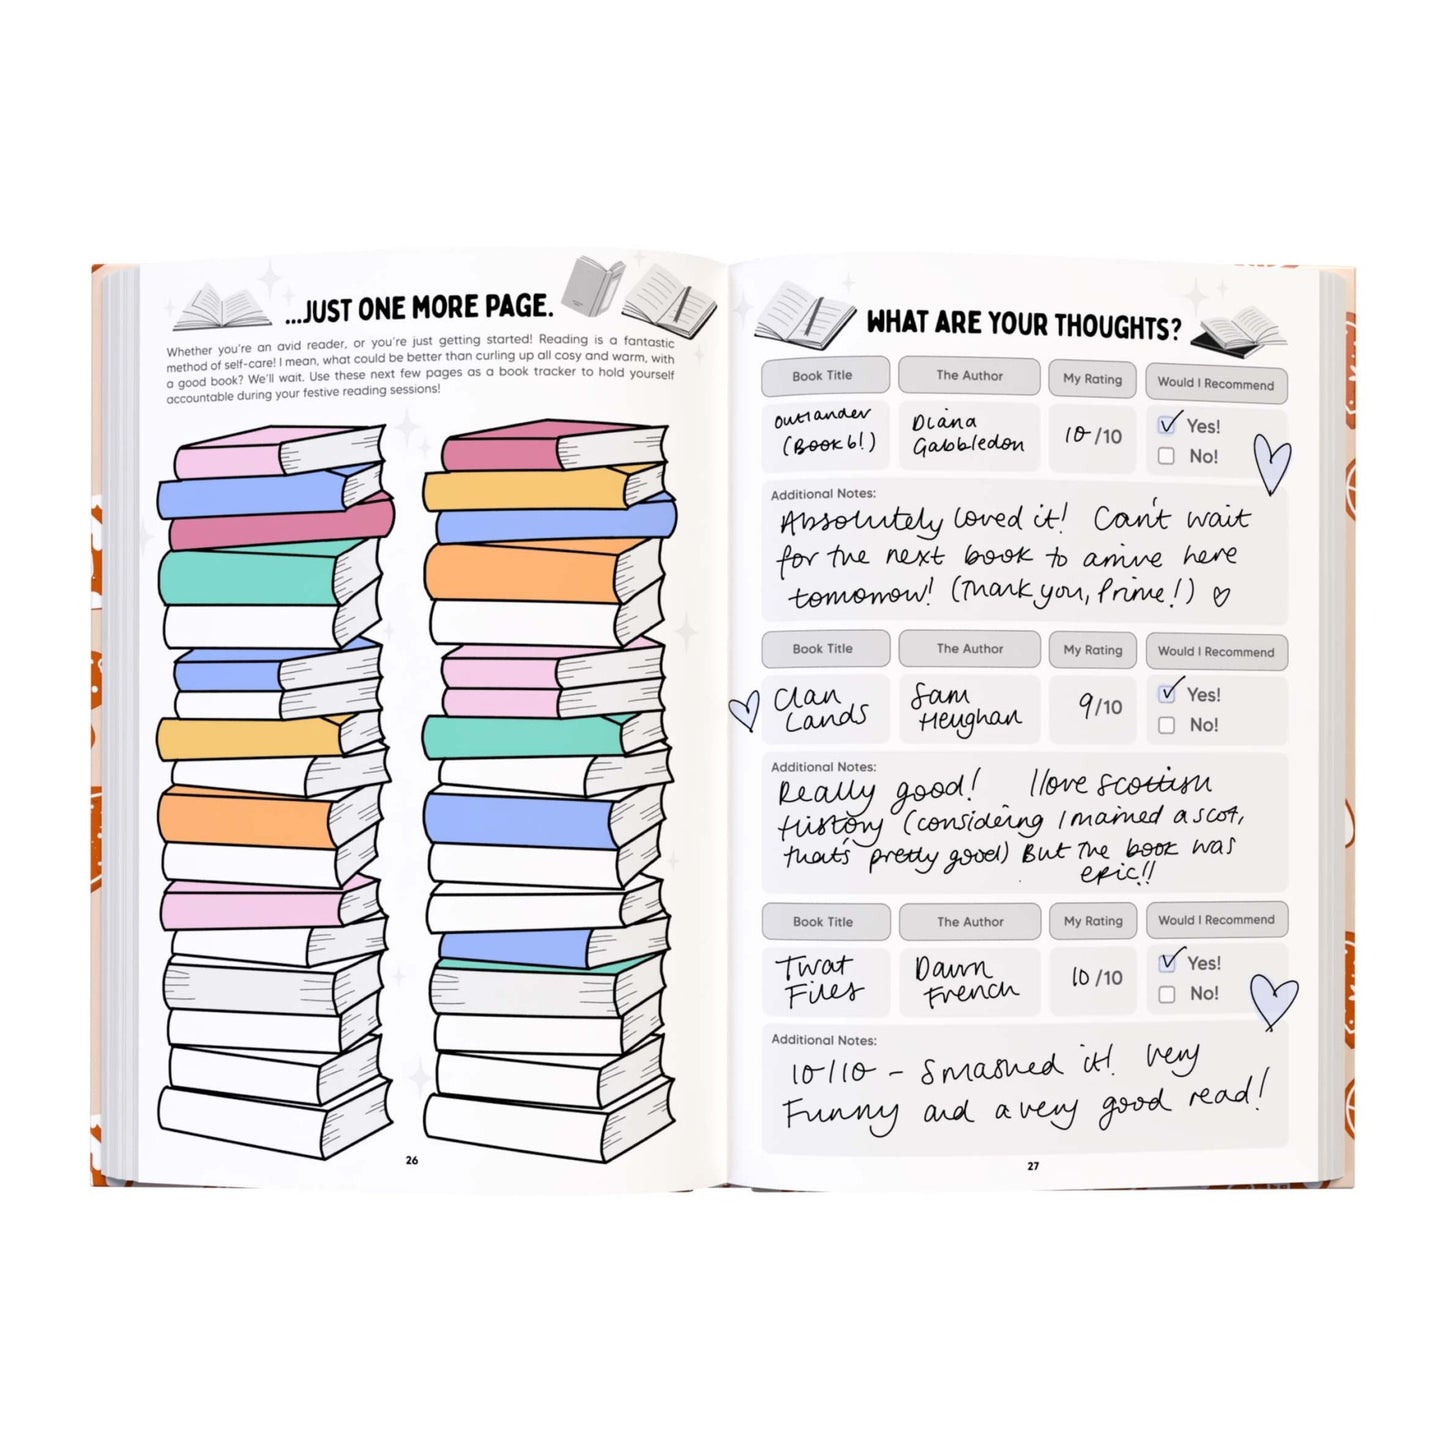 ...JUST ONE MORE PAGE.
Whether you're an avid reader, or you're just getting started! Reading is a fantastic
method of self-care! I mean, what could be better than curling up all cosy and warm, with
a good book? We'll wait. Use these next few pages as a book tracker to hold yourself
accountable during your festive reading sessions!
26
WHAT ARE YOUR THOUGHTS?
Book Title The Author My Rating Would I Recommend
Outlander Diana 10/10 Yes!
(Book 6!) Gabbledon No!
Additional Notes:
Absolutely loved it! Can't wait
for the next book to arrive here
tomorrow! (Thank you, Prime!)
Book Title The Author My Rating Would I Recommend
Clan Sam 9/10 Yes!
Lands Heughan No!
Additional Notes:
Really good! I love Scottish
History (considering I married a scot,
that's pretty good) But the book was
epic!!
Book Title The Author My Rating Would I Recommend
Twat Dawn 10/10 Yes!
Files French No!
Additional Notes:
10/10 - Smashed it! Very
Funny and a very good read!
27